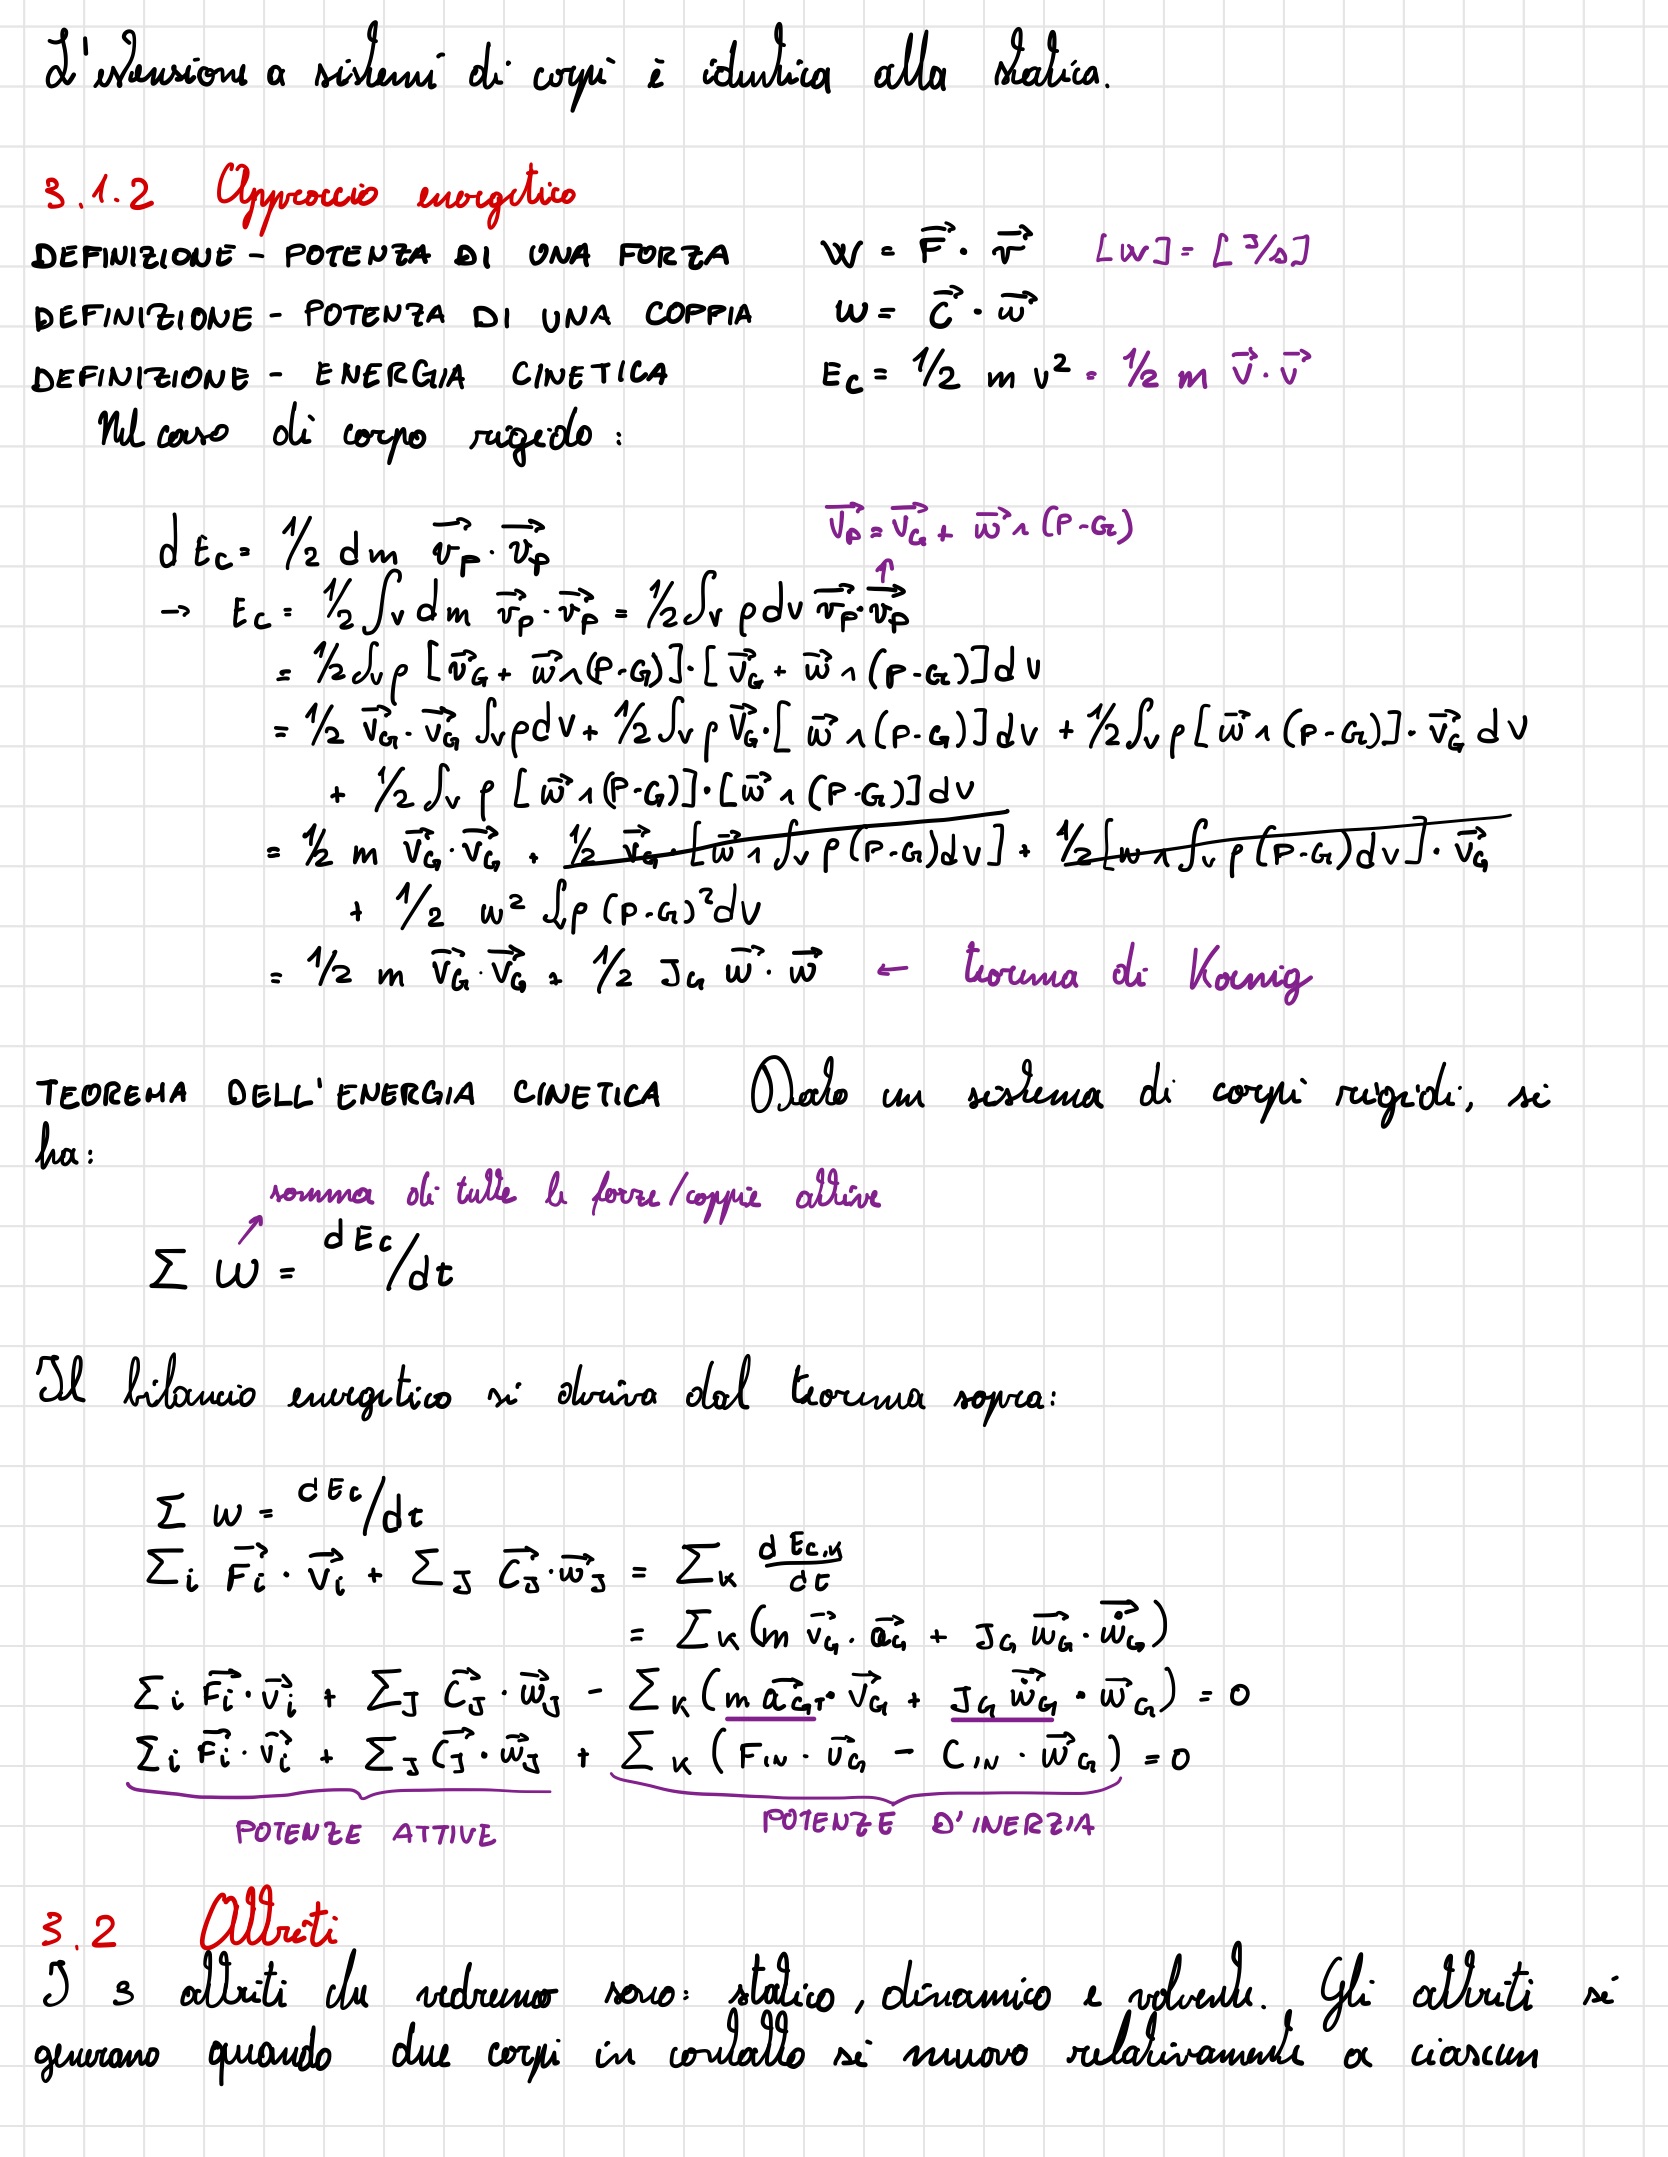 L'estensione a sistemi di corpi è identica alla statica.
3.1.2 Approccio energetico
DEFINIZIONE - POTENZA DI UNA FORZA W = F⃗ · v⃗ [W] = [J/s]
DEFINIZIONE - POTENZA DI UNA COPPIA W = C⃗ · ω⃗
DEFINIZIONE - ENERGIA CINETICA Ec = 1/2 m v² = 1/2 m v⃗ · v⃗
Nel caso di corpo rigido :
v⃗_P = v⃗_G + ω⃗ ∧ (P-G)
d Ec = 1/2 dm v⃗_P · v⃗_P ↑
→ Ec = 1/2 ∫_V dm v⃗_P · v⃗_P = 1/2 ∫_V ρ dV v⃗_P · v⃗_P
= 1/2 ∫_V ρ [v⃗_G + ω⃗ ∧ (P-G)] · [v⃗_G + ω⃗ ∧ (P-G)] dV
= 1/2 v⃗_G · v⃗_G ∫_V ρ dV + 1/2 ∫_V ρ v⃗_G · [ω⃗ ∧ (P-G)] dV + 1/2 ∫_V ρ [ω⃗ ∧ (P-G)] · v⃗_G dV
+ 1/2 ∫_V ρ [ω⃗ ∧ (P-G)] · [ω⃗ ∧ (P-G)] dV
= 1/2 m v⃗_G · v⃗_G + 1/2 v⃗_G · [ω⃗ ∧ ∫_V ρ (P-G) dV] + 1/2 [ω ∧ ∫_V ρ (P-G) dV] · v⃗_G
+ 1/2 ω² ∫ρ (P-G)² dV
= 1/2 m v⃗_G · v⃗_G + 1/2 J_G ω⃗ · ω⃗ ← teorema di Koenig
TEOREMA DELL'ENERGIA CINETICA Dato un sistema di corpi rigidi, si
ha:
somma di tutte le forze/coppie attive
Σ W = dEc/dt
Il bilancio energetico si deriva dal teorema sopra:
Σ W = dEc/dt
Σ_i F⃗_i · v⃗_i + Σ_J C⃗_J · ω⃗_J = Σ_K d Ec,K / dt
= Σ_K (m v⃗_G · a⃗_G + J_G ω⃗_G · ω̇⃗_G)
Σ_i F⃗_i · v⃗_i + Σ_J C⃗_J · ω⃗_J - Σ_K (m a⃗_G · v⃗_G + J_G ω̇⃗_G · ω⃗_G) = 0
Σ_i F⃗_i · v⃗_i + Σ_J C⃗_J · ω⃗_J + Σ_K (F_IN · v⃗_G - C_IN · ω⃗_G) = 0
POTENZE ATTIVE POTENZE D'INERZIA
3.2 Attriti
I 3 attriti che vedremo sono: statico, dinamico e volvente. Gli attriti si
generano quando due corpi in contatto si muovo relativamente a ciascun